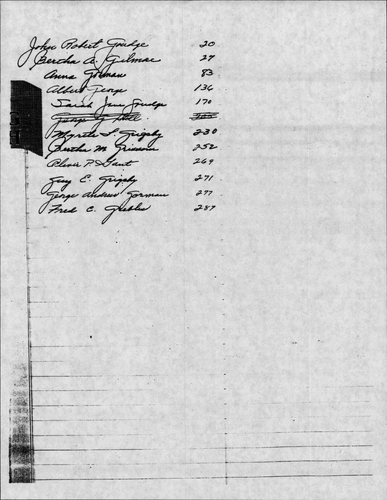 John Robert Gudge 20
Bertha A. Gilmac 27
Anna Gorman 83
Albert George 136
Sarah Jane Gudge 170
George
Myrtle L. Grigsby 230
Bertha M. 252
Oliver P. Gant 269
Guy C. Grigsby 271
George Andrew Gorman 277
Fred C. Geebler 287